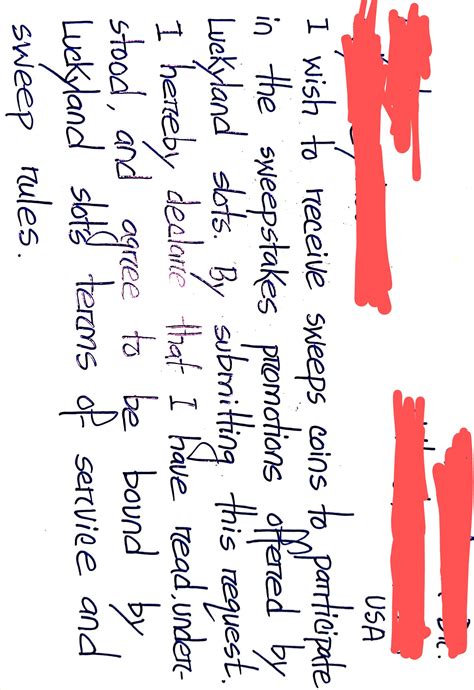 USA
I wish to receive sweeps coins to participate
in the sweepstakes promotions offered by
Luckyland slots. By submitting this request.
I hereby declare that I have read, under-
stood, and agree to be bound by
Luckyland slots terms of service and
sweep rules.